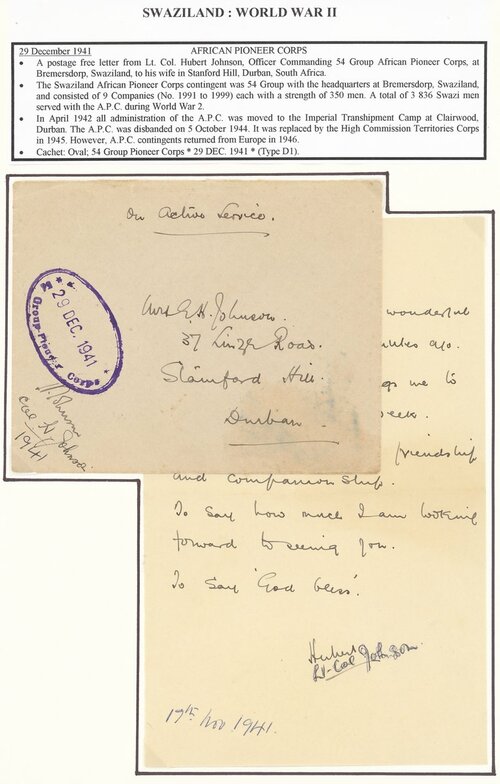 SWAZILAND : WORLD WAR II
29 December 1941 AFRICAN PIONEER CORPS
• A postage free letter from Lt. Col. Hubert Johnson, Officer Commanding 54 Group African Pioneer Corps, at
Bremersdorp, Swaziland, to his wife in Stanford Hill, Durban, South Africa.
• The Swaziland African Pioneer Corps contingent was 54 Group with the headquarters at Bremersdorp, Swaziland,
and consisted of 9 Companies (No. 1991 to 1999) each with a strength of 350 men. A total of 3 836 Swazi men
served with the A.P.C. during World War 2.
• In April 1942 all administration of the A.P.C. was moved to the Imperial Transhipment Camp at Clairwood,
Durban. The A.P.C. was disbanded on 5 October 1944. It was replaced by the High Commission Territories Corps
in 1945. However, A.P.C. contingents returned from Europe in 1946.
• Cachet: Oval; 54 Group Pioneer Corps * 29 DEC. 1941 * (Type D1).
On Active Service.
Mrs E.H. Johnson.
37 Road.
Stamford Hill.
Durban.
29 DEC. 1941
Group Pioneer Corps
Col H Johnson.
1941
wonderful
ago.
me to
friendship
and companionship.
To say how much I am looking
forward to seeing you.
To say 'God bless'.
Hubert
Lt-Col Johnson.
17th Nov 1941.